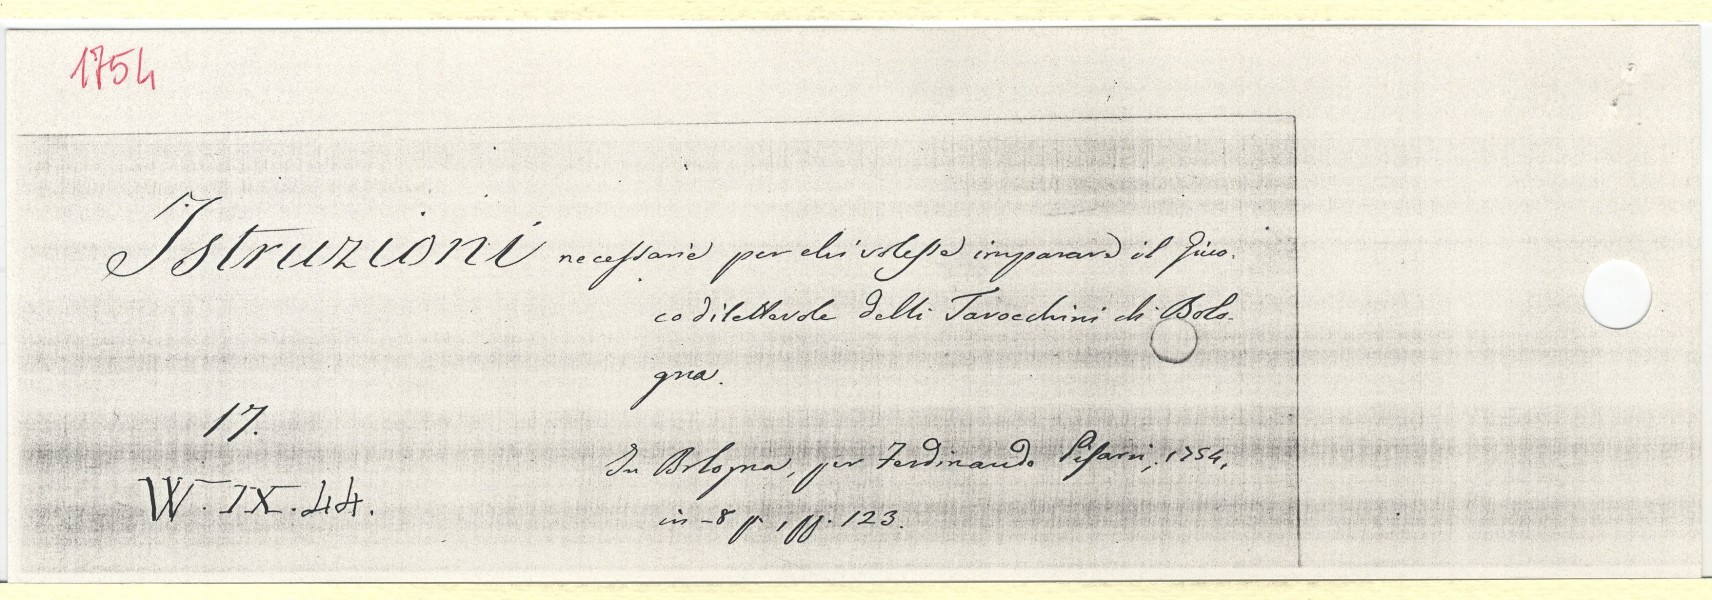 1754
Istruzioni necessarie per chi volesse imparare il Giuo-
co dilettevole delli Tarocchini di Bolo-
gna.
17.
In Bologna, per Ferdinando Pisarri, 1754,
W. IX. 44.
in-8 p., pp. 123.